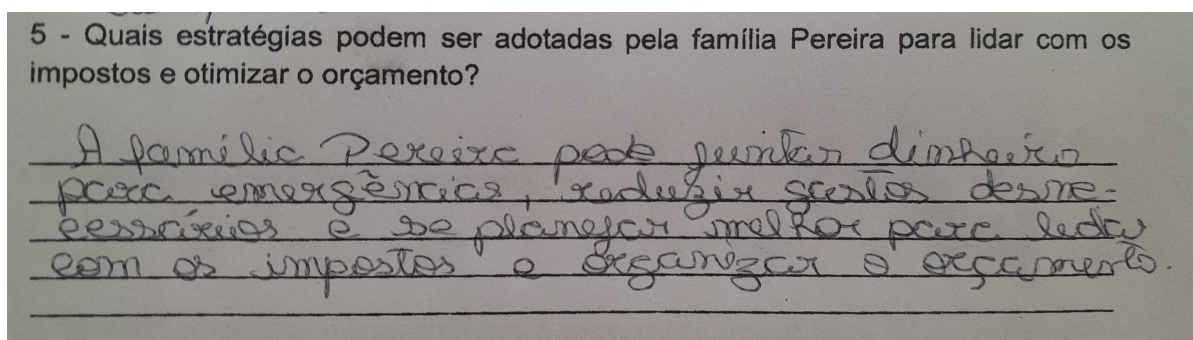 5 - Quais estratégias podem ser adotadas pela família Pereira para lidar com os
impostos e otimizar o orçamento?
A família Pereira pode juntar dinheiro
para emergências, reduzir gastos desne-
cessários e se planejar melhor para lidar
com os impostos e organizar o orçamento.